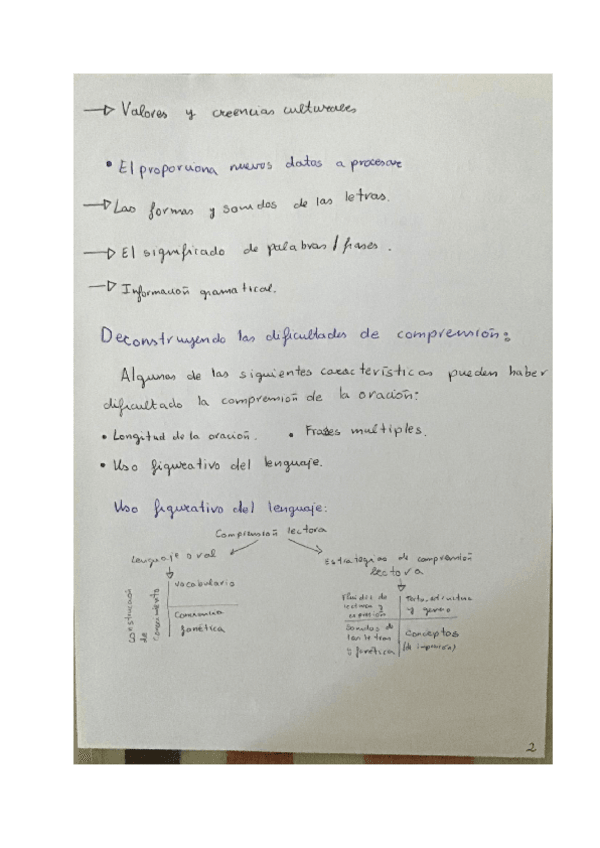 → Valores y creencias culturales
• El proporciona nuevos datos a procesar
→ Las formas y sonidos de las letras.
→ El significado de palabras / frases.
→ Información gramatical.
Deconstruyendo las dificultades de comprensión:
Algunas de las siguientes características pueden haber
dificultado la comprensión de la oración:
• Longitud de la oración. • Frases multiples.
• Uso figurativo del lenguaje.
Uso figurativo del lenguaje:
Comprensión lectora
Lenguaje oral
Estrategias de comprensión
lectora
Construcción
de
conocimiento
vocabulario
Conciencia
fonética
Fluidez de
lectura y
Texto, estructura
y genero
Sonidos de
las letras
y fonética
Conceptos
(de impresión)
2